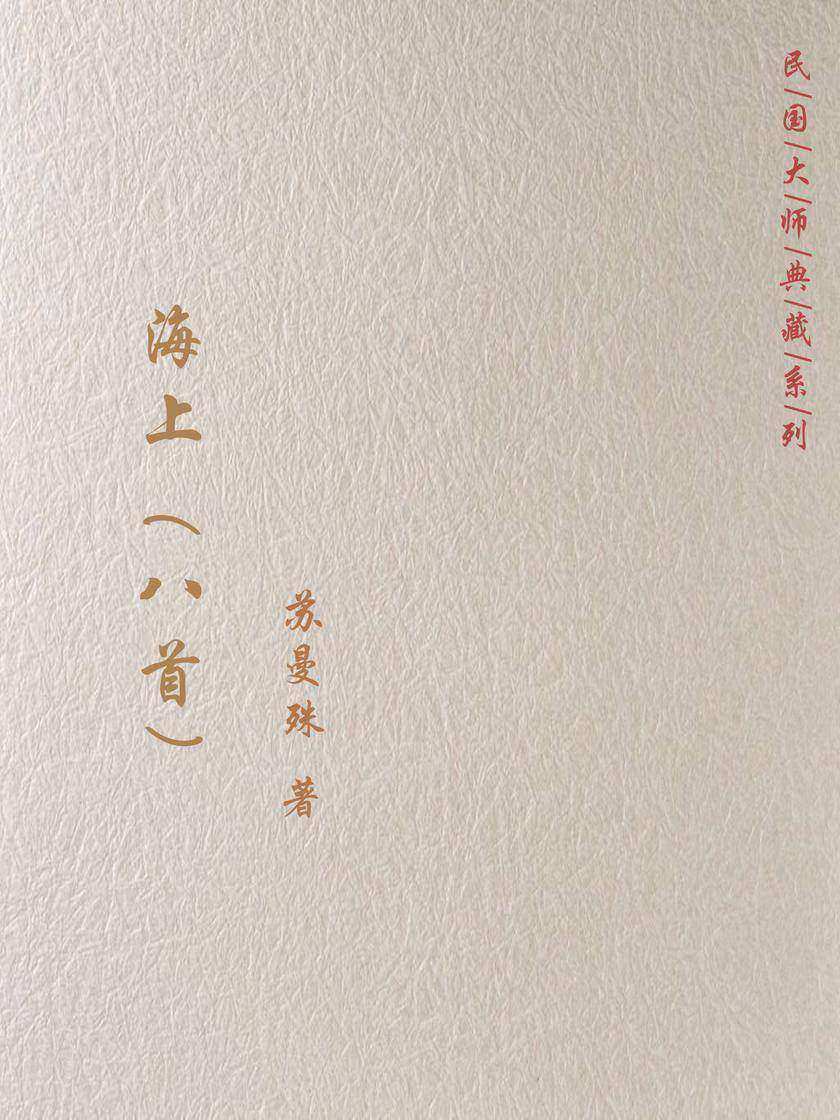 民/国/大/师/典/藏/系/列
海上（八首）
苏曼殊 著